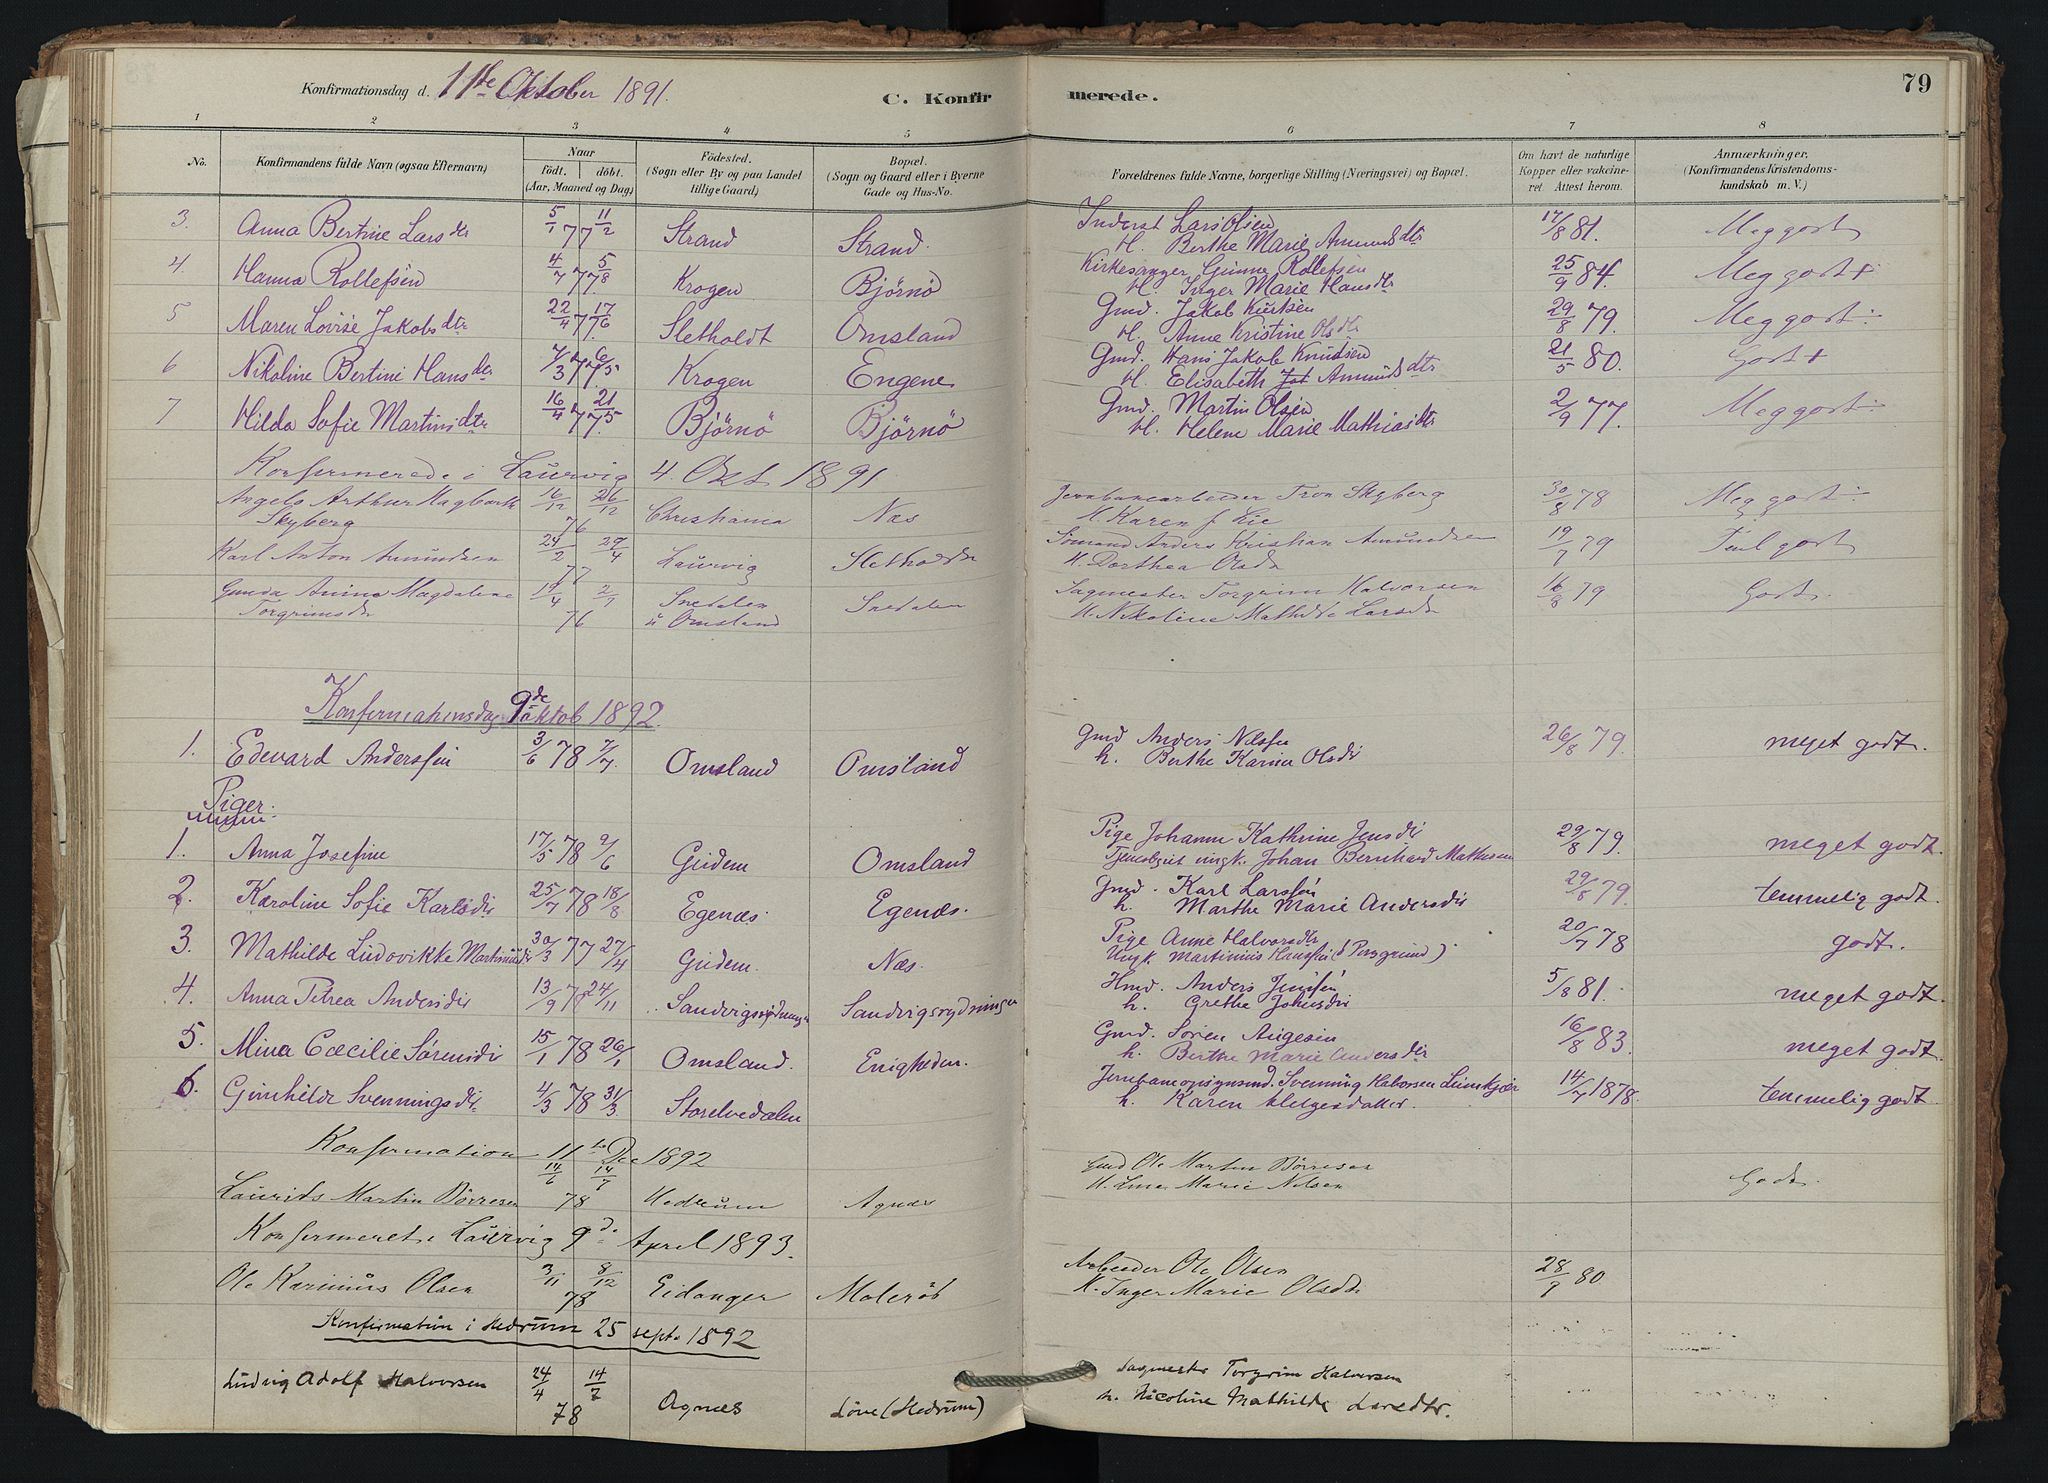 79
Konfirmationsdag d. 11te Oktober 1891.
C. Konfirmerede.
1 2 3 4 5 6 7 8
No. Konfirmandens fulde Navn (ogsaa Efternavn) Naar født. døbt. (Aar, Maaned og Dag) Födested. (Sogn eller By og paa Landet tillige Gaard) Bopæl. (Sogn og Gaard eller i Byerne Gade og Hus-No. Forældrenes fulde Navne, borgerlige Stilling (Næringsvei) og Bopæl. Om havt de naturlige Kopper eller vakcineret Attest herom. Anmærkninger. (Konfirmandens Kristendomskundskab m. V.)
3. Anna Bertine Larsdtr 5/1 77 11/2 Strand Strand. Inderst Lars Olsen 17/8 81. Meg godt
H. Berthe Marie Amundsdtr
4. Hanna Rollefsen 4/7 77 5/8 Krogen Bjørnø Kirkesanger Gunne Rollefsen 25/9 84. Meg godt +
H. Inger Marie Hansdtr
5 Maren Lovise Jakobsdtr 22/4 77 17/6 Sletholdt Omsland Gmd. Jakob Kurtsen 29/8 79. Meg godt ÷
H. Anne Kristine Olsdtr
6 Nikoline Bertine Hansdtr 7/3 77 6/5 Krogen Engene Gmd. Hans Jakob Knudsen 21/5 80. Godt +
H. Elisabeth Amundsdtr
7 Hilda Sofie Martinsdtr 16/4 77 21/5 Bjørnø Bjørnø Gmd. Martin Olsen 2/9 77. Meg godt ÷
H. Helene Marie Mathiasdtr
Konfermerede i Laurvig 4. Okt 1891
Angelo Arthur Hagbarth 16/12 26/12 Christiania Næs Jernbanearbeider Tron Skyberg 30/8 78 Meg godt ÷
Skyberg 76 H. Karen J. Lie
Karl Anton Amundsen 24/2 29/4 Laurvig Sletholdt Sømand Anders Kristian Amundsen 19/7 79 Tml godt
77 H. Dorthea Olsdr
Gunda Anine Magdalene 19/4 2/7 Snedalen Snedalen Sagmester Torgrim Halvorsen 16/8 79 Godt.
Torgrimsdr 76 u Omsland H. Nikoline Mathilde Larsdr
Konfermationsdag 9de oktob 1892.
1. Edevard Anderssen 3/6 78 7/7. Omsland Omsland Gmd Anders Nilssen 26/8 79. meget godt.
h. Berthe Karine Olsdr
Piger:
1. Anna Josefine 17/5 78 9/6 Gudem Omsland Pige Johanne Kathrine Jensdr 29/8 79. meget godt.
Tjenestgut ungk. Johan Bernhard Mathisen
2. Karoline Sofie Karlsdr 25/7 78 18/8 Egenæs. Egenæs. Gmd. Karl Larssen 29/8 79. temmelig godt.
h. Marthe Marie Andersdr
3. Mathilde Ludovikke Martinsdr 30/3 77 27/4 Gudem. Næs. Pige Anne Halvorsdtr 20/7 78 godt.
Ungk. Martinius Hanssen (Porsgrund)
4. Anna Petrea Andersdr 13/9 78 24/11 Sandvigsrydningen Sandvigsrydningen Hmd. Anders Jenssen 5/8 81. meget godt.
h. Grethe Johnsdr
5. Mina Cæcilie Sørensdr 15/1 78 26/1 Omsland. Enigheden. Gmd. Søren Augesen 16/8 83. meget godt.
h. Berthe Marie Andersdr
6. Gunhilde Svenningsdr. 4/3 78 31/3 Storelvedalen Jernbaneopsynsmd. Svenning Halvorsen Lunskjær 14/7 1878. temmelig godt.
h. Karen Helgesdatter.
Konfermation 11te Dec 1892
14/6 14/7 Gmd Ole Martin Børresen
Laurits Martin Børresen 78 Hedrum Agnæs H. Lina Marie Nilsen Godt.
Konfermeret i Laurvig 9de April 1893.
Ole Karinius Olsen 3/11 8/12 Eidanger Malerød Arbeider Ole Olsen 28/9 80
78 H. Inger Marie Olsdtr
Konfirmation i Hedrum 25 septe 1892
Ludvig Adolf Halvorsen 24/4 14/7 Agnæs Løve (Hedrum) Sagmester Torgrim Halvorsen
78 h. Nicoline Mathilde Larsdtr.